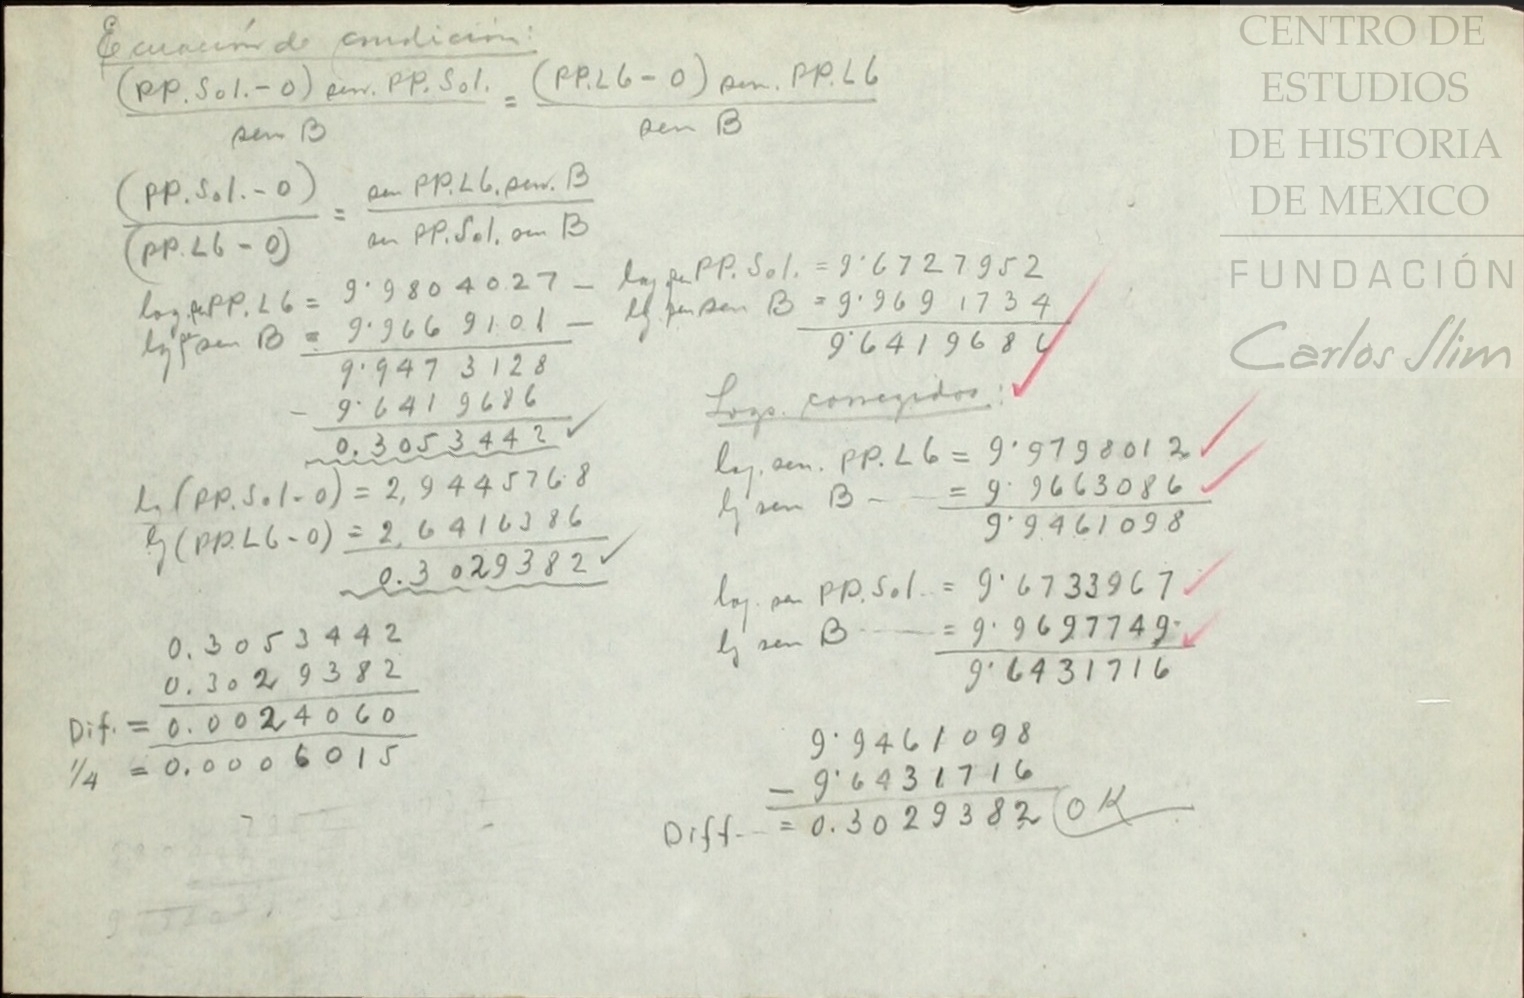 Ecuación de condición:
(PP.Sol.-0) sen. PP.Sol. = (PP.L6-0) sen. PP.L6
sen B sen B
(PP.Sol.-0) = sen PP.L6. sen. B
(PP.L6-0) sen PP.Sol. sen B
log sen PP.L6 = 9.9804027 -
lg sen B = 9.9669101 -
9.9473128
- 9.6419686
0.3053442 ✓
lg (PP.Sol-0) = 2,9445768
lg (PP.L6-0) = 2,6416386
0.3029382 ✓
0.3053442
0.3029382
Dif. = 0.0024060
1/4 = 0.0006015
log sen PP.Sol. = 9.6727952
lg sen B = 9.9691734
9.6419686
Logs. corregidos: ✓
log. sen. PP.L6 = 9.9798012 ✓
lg sen B - = 9.9663086 ✓
9.9461098
log. sen PP.Sol. = 9.6733967 ✓
lg sen B = 9.9697749 ✓
9.6431716
9.9461098
- 9.6431716
Diff. = 0.3029382 OK
CENTRO DE
ESTUDIOS
DE HISTORIA
DE MEXICO
FUNDACIÓN
Carlos Slim